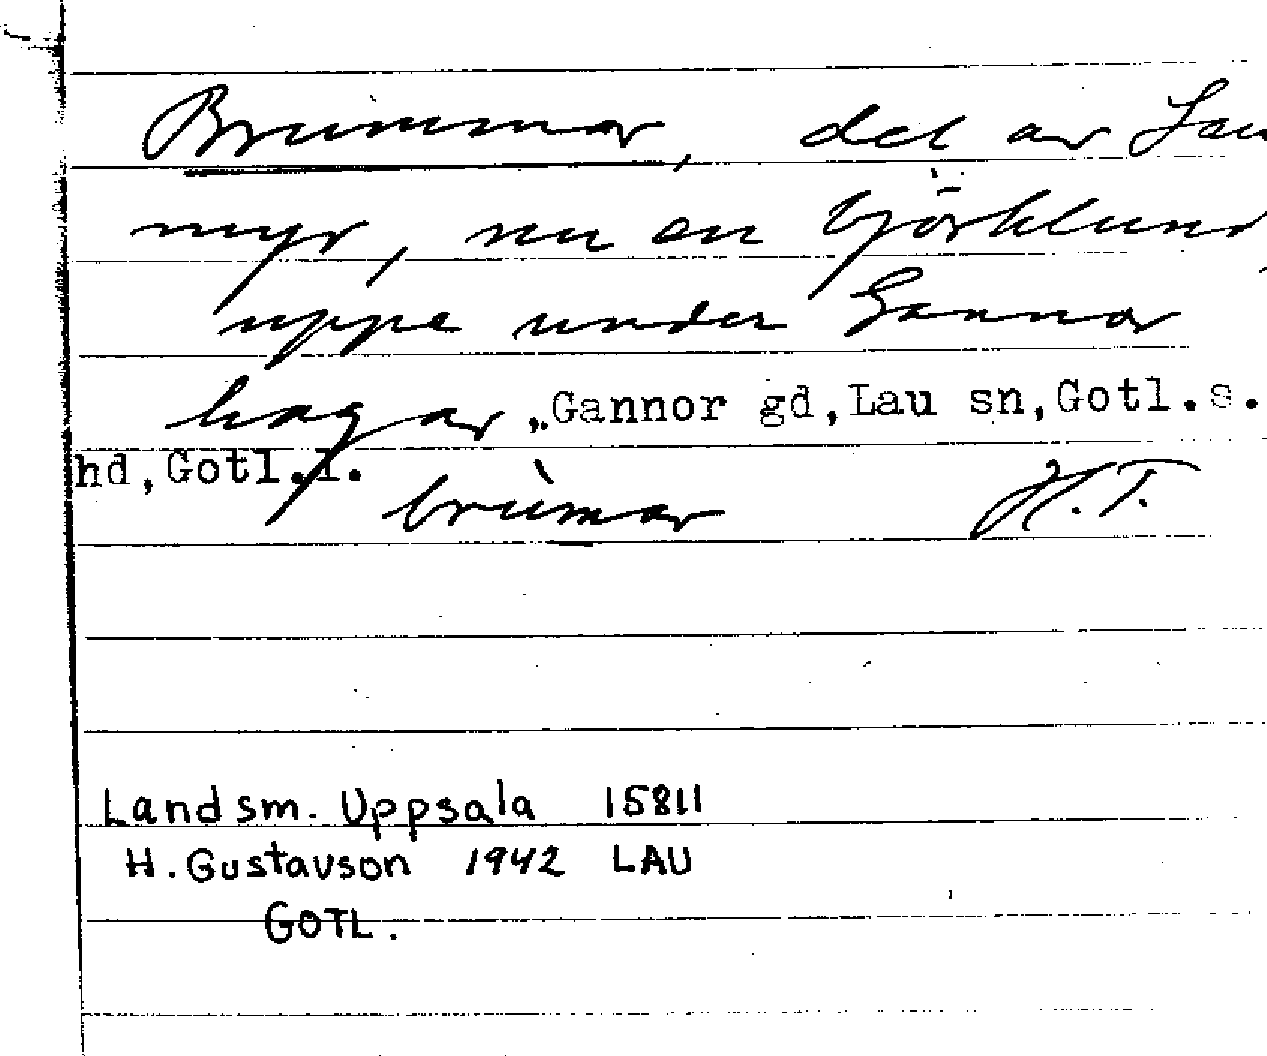 Brummar, del av Lau
myr, nu en björklund
uppe under Gannor
hagar, Gannor gd, Lau sn, Gotl.s.
hd, Gotl.l.
brùmar H.T.
Landsm. Uppsala 15811
H. Gustavson 1942 LAU
GOTL.